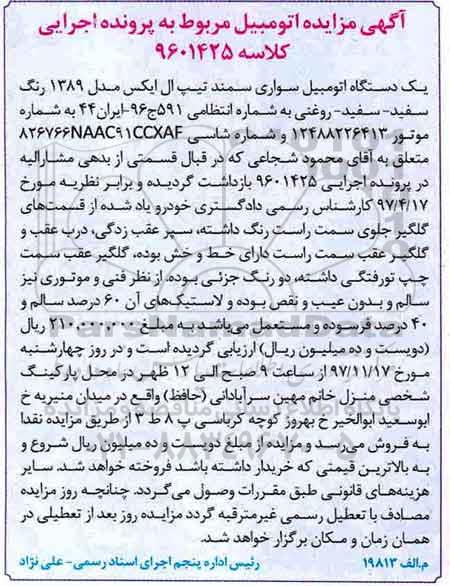 آگهی مزایده اتومبیل مربوط به پرونده اجرایی
کلاسه ۹۶۰۱۴۲۵
یک دستگاه اتومبیل سواری سمند تیپ ال ایکس مدل ۱۳۸۹ رنگ
سفید- سفید- روغنی به شماره انتظامی ۵۹۱ج۹۶-ایران۴۴ به شماره
موتور ۱۲۴۸۸۲۲۶۴۱۳ و شماره شاسی ۸۲۶۷۶۶NAAC۹۱CCXAF
متعلق به آقای محمود شجاعی که در قبال قسمتی از بدهی مشارالیه
در پرونده اجرایی ۹۶۰۱۴۲۵ بازداشت گردیده و برابر نظریه مورخ
۹۷/۴/۱۷ کارشناس رسمی دادگستری خودرو یاد شده از قسمت‌های
گلگیر جلوی سمت راست رنگ داشته، سپر عقب زدگی، درب عقب و
گلگیر عقب سمت راست دارای خط و خش بوده، گلگیر عقب سمت
چپ تورفتگی داشته، دو رنگ جزئی بوده، از نظر فنی و موتوری نیز
سالم و بدون عیب و نقص بوده و لاستیک‌های آن ۶۰ درصد سالم و
۴۰ درصد فرسوده و مستعمل می‌باشد به مبلغ ۲۱۰،۰۰۰،۰۰۰ ریال
(دویست و ده میلیون ریال) ارزیابی گردیده است و در روز چهارشنبه
مورخ ۹۷/۱۱/۱۷ از ساعت ۹ صبح الی ۱۲ ظهر در محل پارکینگ
شخصی منزل خانم مهین سرآبادانی (حافظ) واقع در میدان منیریه خ
ابوسعید ابوالخیر خ بهروز کوچه کرباسی پ ۸ ط ۳ از طریق مزایده نقدا
به فروش می‌رسد و مزایده از مبلغ دویست و ده میلیون ریال شروع و
به بالاترین قیمتی که خریدار داشته باشد فروخته خواهد شد. سایر
هزینه‌های قانونی طبق مقررات وصول می‌گردد. چنانچه روز مزایده
مصادف با تعطیل رسمی غیرمترقبه گردد مزایده روز بعد از تعطیلی در
همان زمان و مکان برگزار خواهد شد.
م.الف ۱۹۸۱۳ رئیس اداره پنجم اجرای اسناد رسمی- علی نژاد